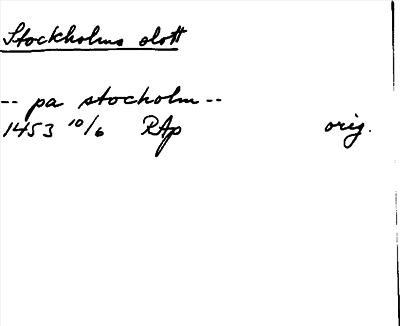 Stockholms slott
-- pa stocholm --
1453 10/6 RAp orig.